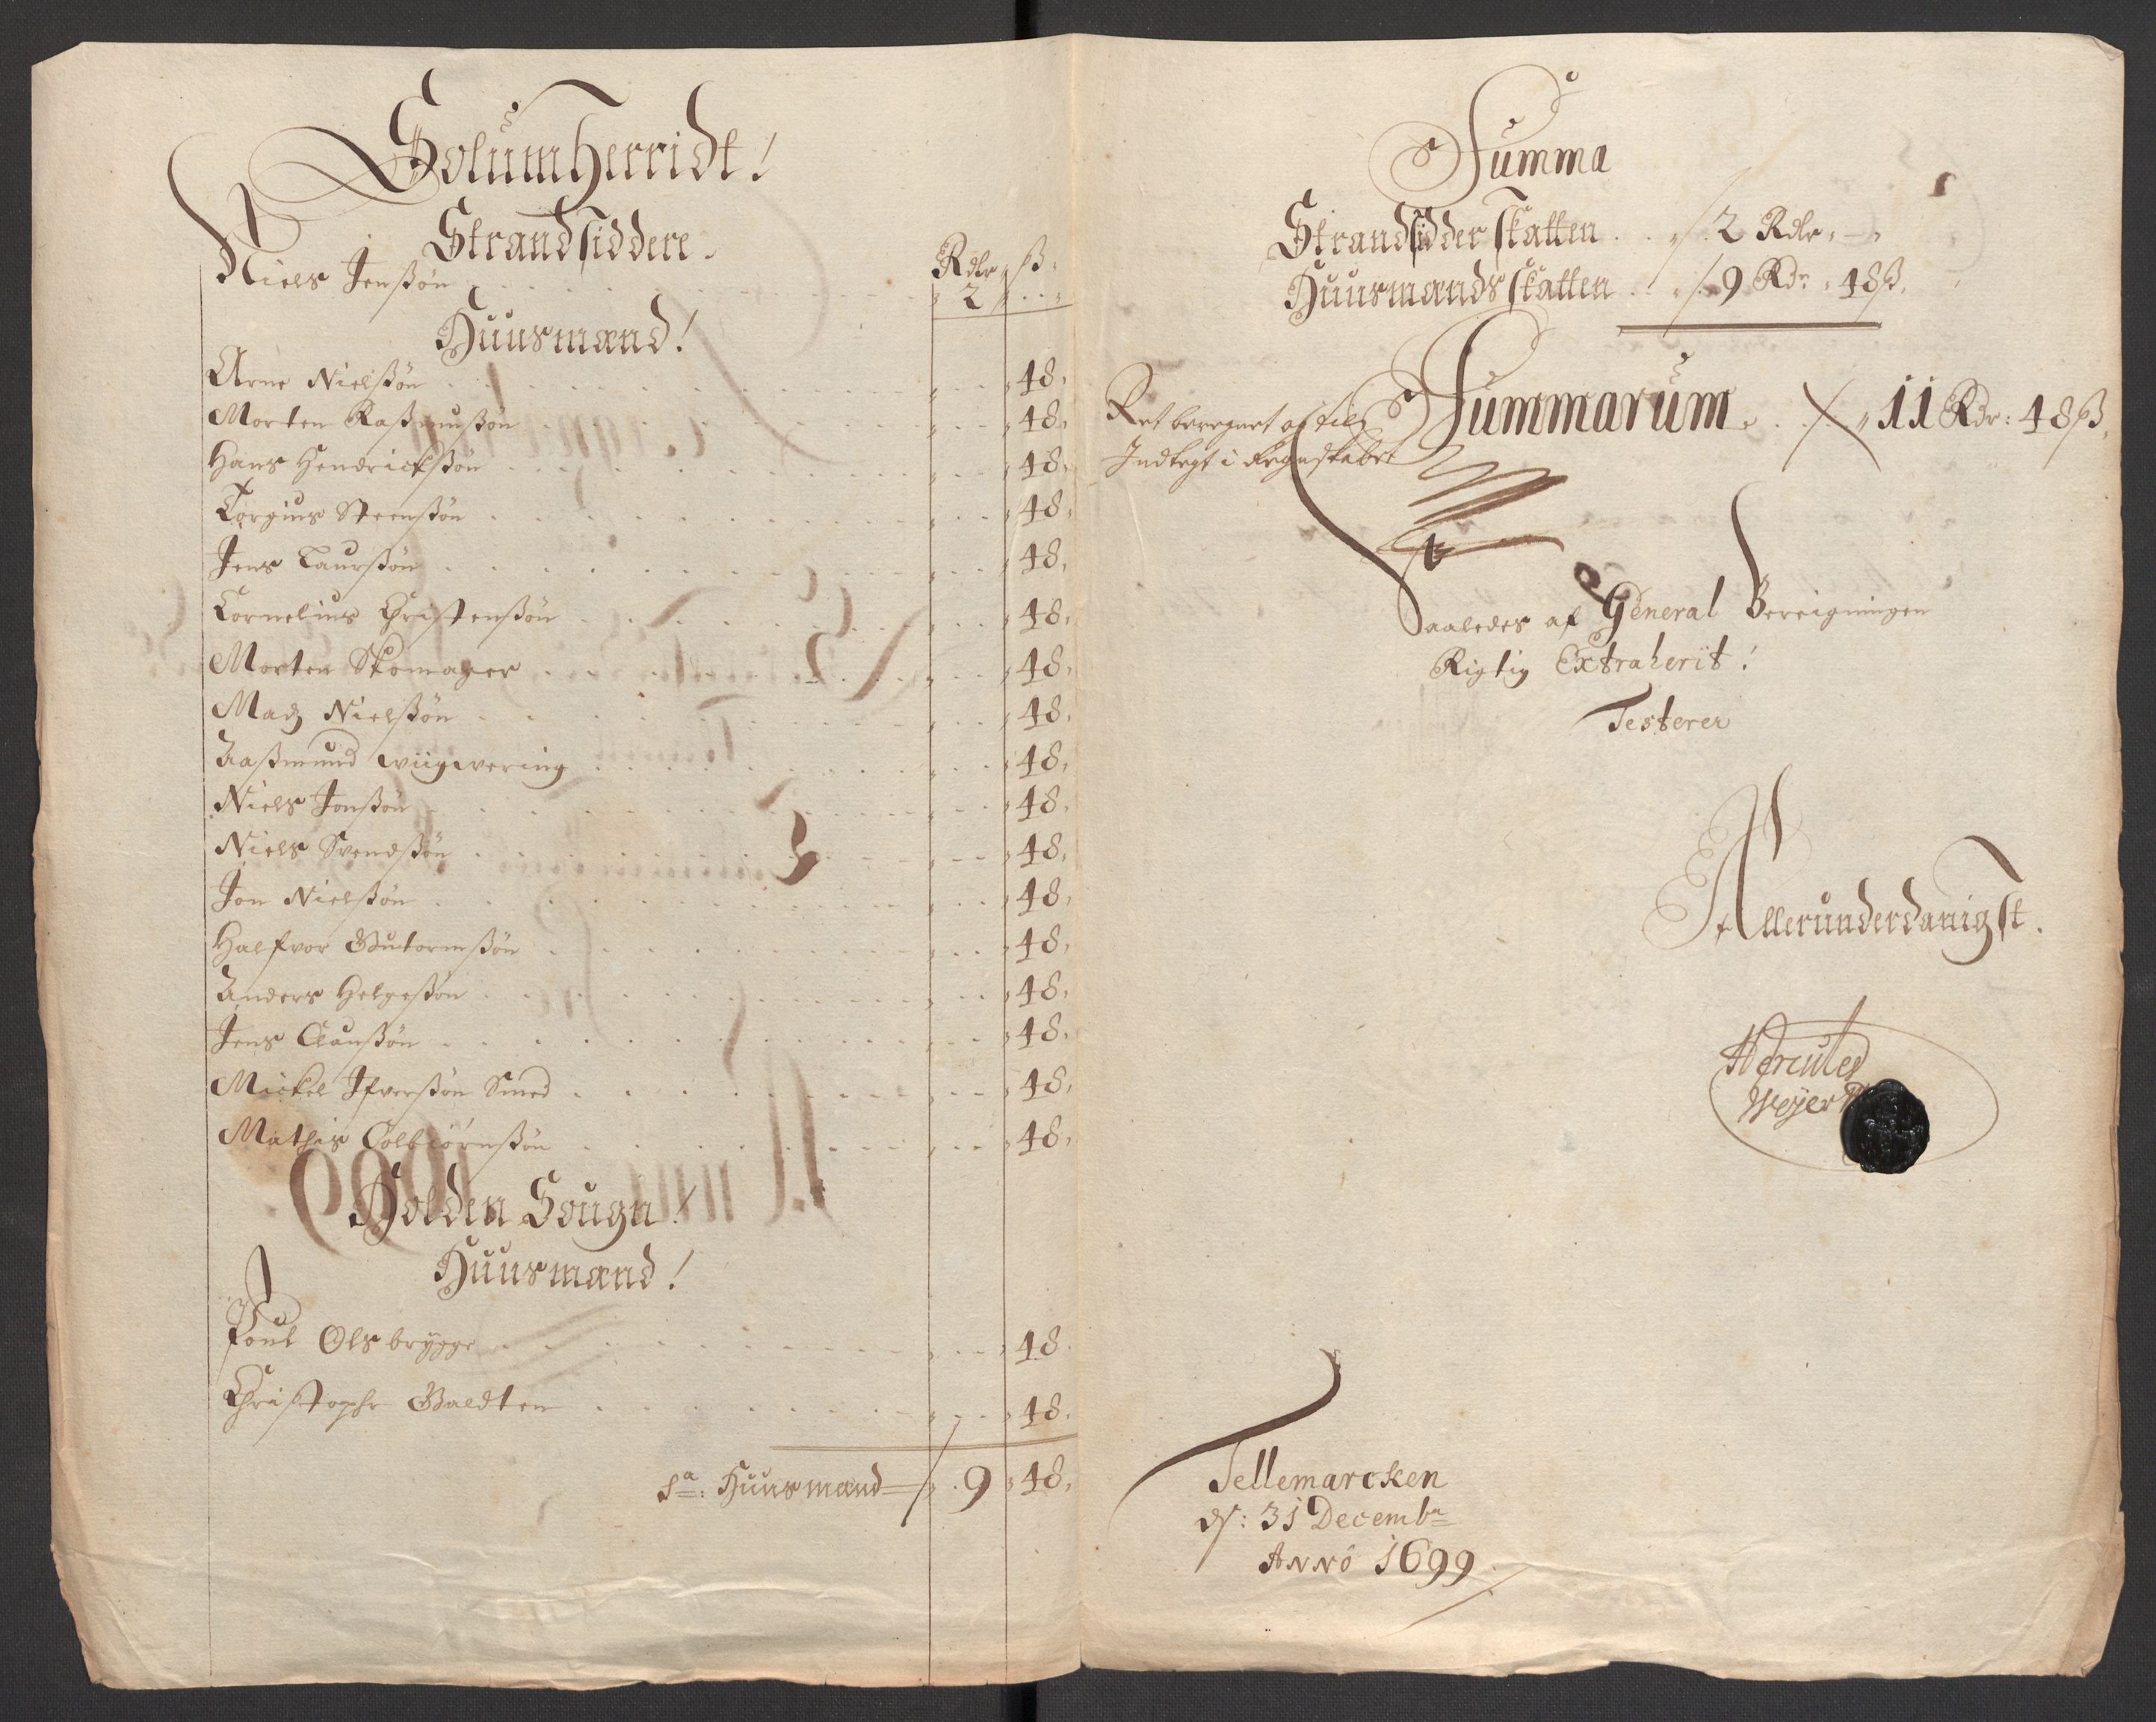 Solumherridt!
Strandsiddere.
Rdlr ß
Niels Jenßøn 2
Huusmænd!
Arne Nielßøn 48
Morten Raßmußøn 48
Hans Hendrickßøn 48
Torgius Steenßøn 48
Jens Laurßøn 48
Cornelius Christenßøn 48
Morten Skomager 48
Madz Nielßøn 48
Aaßmund wiigwering 48
Niels Jonßøn 48
Niels Svendßøn 48
Jon Nielßøn 48
Halfvor Gutormßøn 48
Anders Helgeßøn 48
Jens Claußøn 48
Mickel Ifverßøn Smed 48
Mathis Colbiørnßøn 48
Holden Sougn!
Huusmænd!
Poul Olsbrygge 48
Christophr Baldten 48
Sa: Huusmænd 9 48
Summa
Strandsidder skatten 2 Rdlr
Huusmands skatten 9 Rdr 48ß
Summarum 11 Rdr: 48ß
Ret beregnet og til
Indlegt i Regnskabet
Saaledes af General Bereigningen
Rigtig Extraherit!
Testerer
Allerunderdanigst.
Hercules
Weyer
Tellemarcken
d: 31 Decembr
Anno 1699